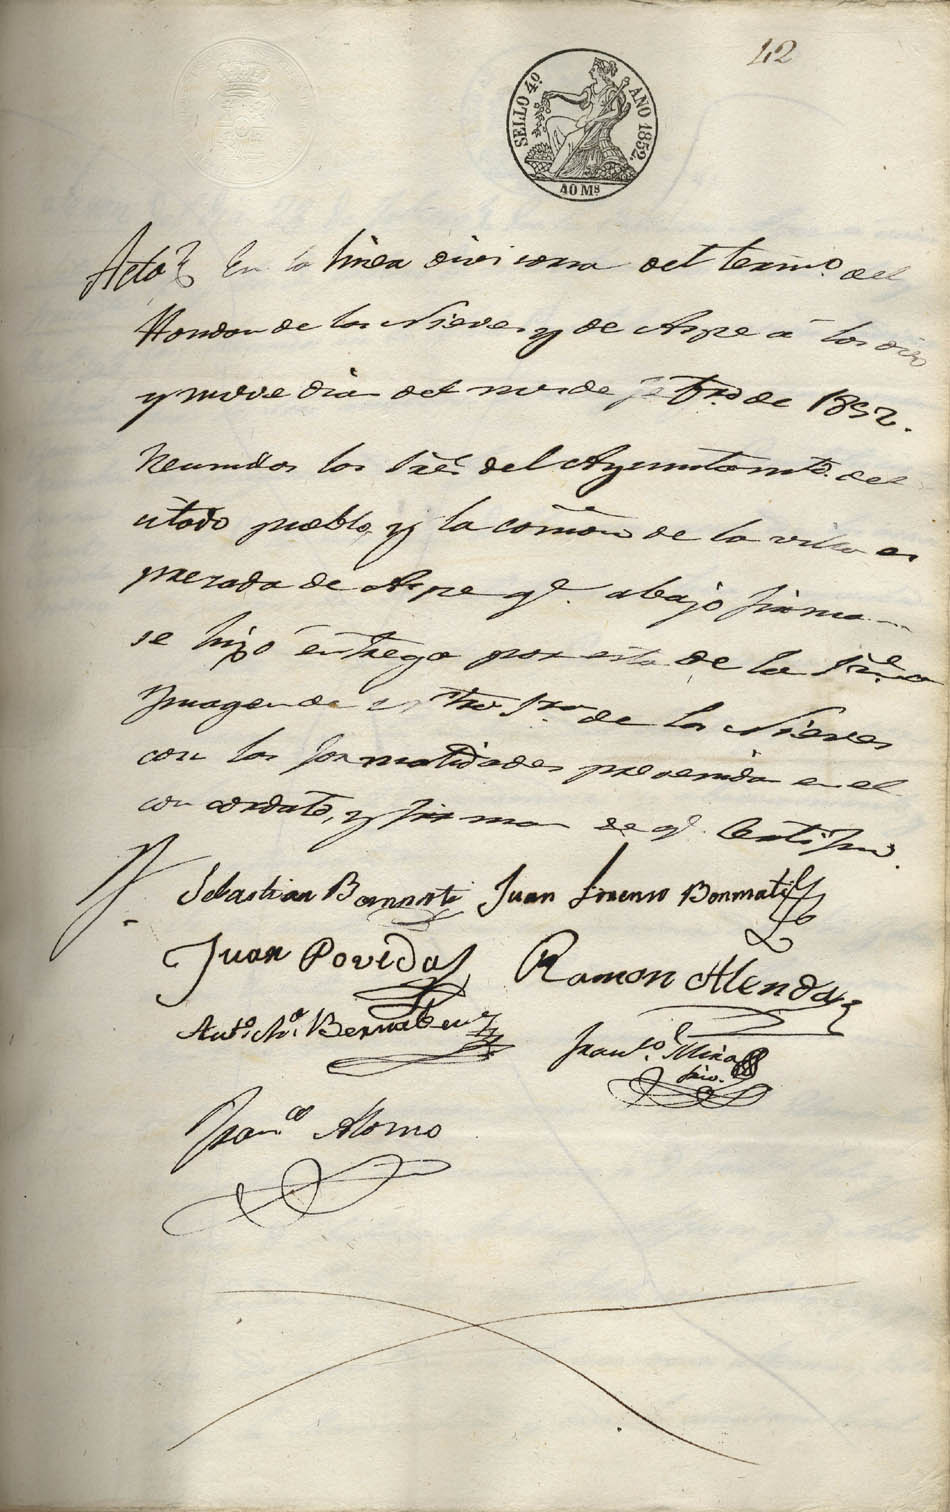 42
SELLO 4º. AÑO 1852.
40 Ms
Acta En la linea divisoria del termo. del
Hondon de las Nieves y de Aspe á los diez
y nueve dias del mes de febro de 1852.
Reunidos los Sres del Ayuntamto. del
citado pueblo, y la comon de la villa es
presada de Aspe qe. abajo firman
se hizó entrega por esta de la
Imagen de Ntra Sra de las Nieves
con las formalidades prevenidas en el
concordato, y firman de qe. Certifico.
Sebastian Bonmati Juan Lorenso Bonmati
Juan Poveda Ramon Alenda
Anto. Ma. Bernabeu Franco. Mira
Srio.
Franco Alomo